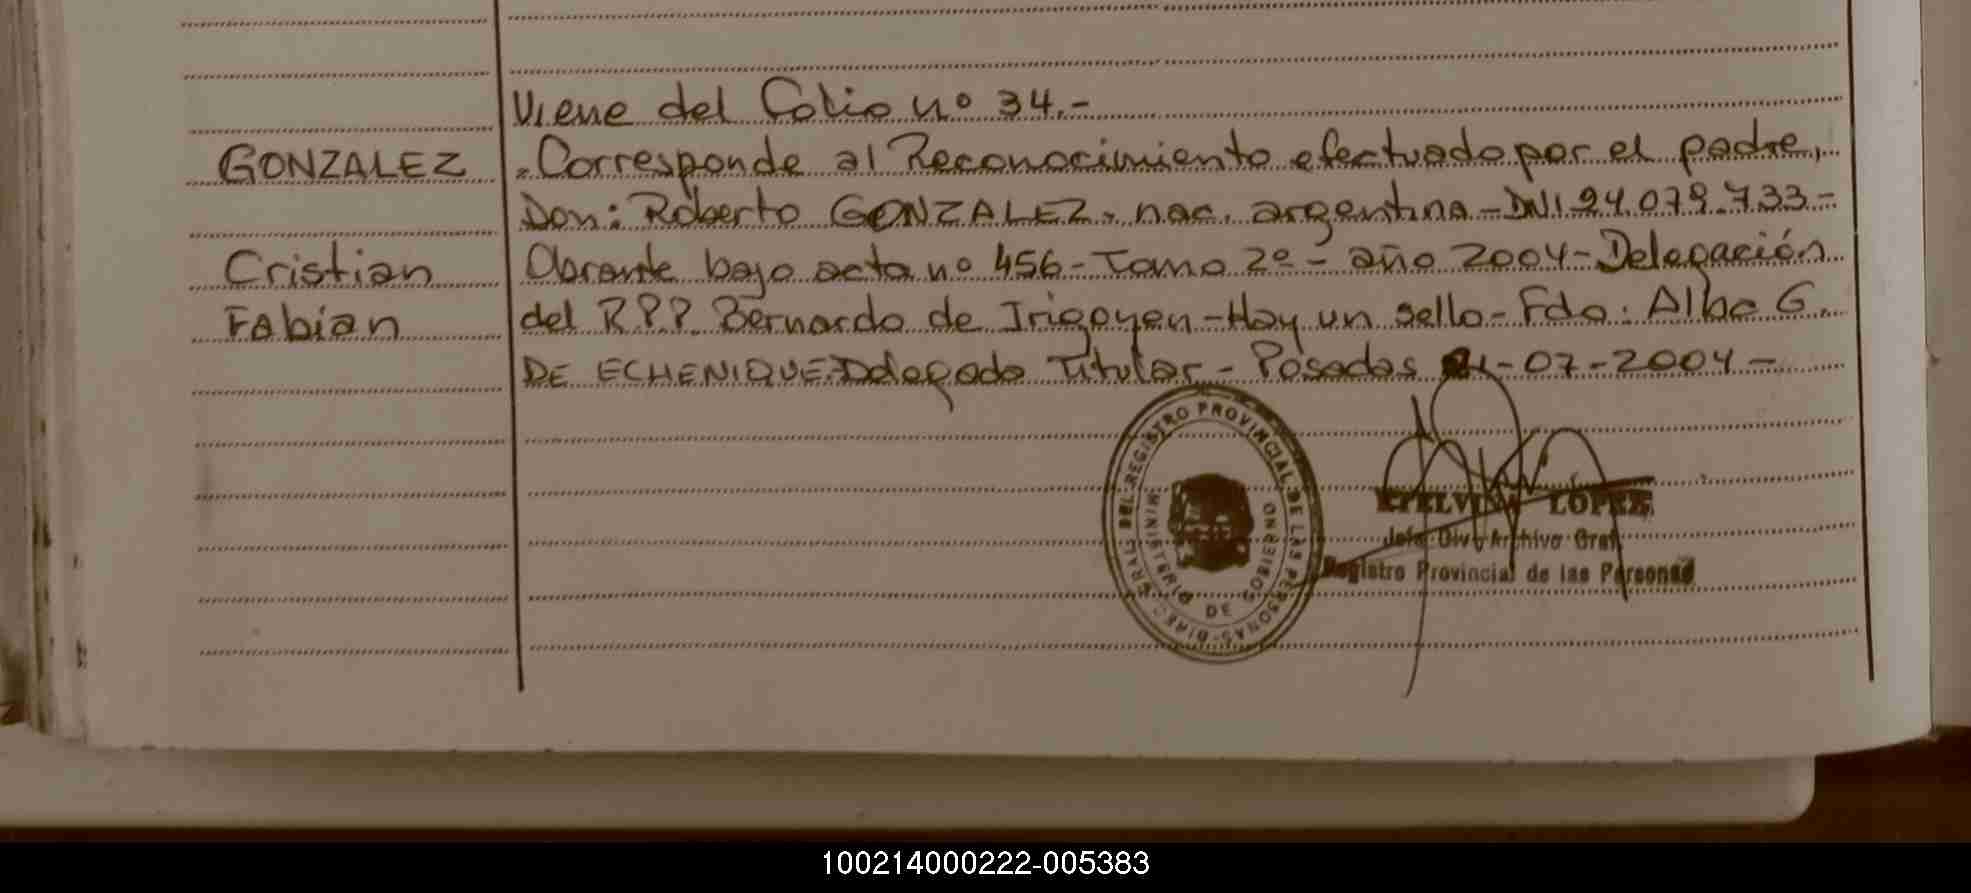 Viene del Folio nº 34.-
GONZALEZ
Cristian
Fabian
.Corresponde al Reconocimiento efectuado por el padre,
Don: Roberto GONZALEZ, nac. argentina - DNI 94.079.733-
Obrante bajo acta nº 456 - Tomo 2º - año 2004 - Delegación
del R.P.P. Bernardo de Irigoyen - Hay un sello - Fdo: Alba G.
DE ECHENIQUE. Delegado Titular - Posadas -07-2004 -
REGISTRO PROVINCIAL DE LAS PERSONAS
MINISTERIO DE GOBIERNO
LOPEZ
Jefa Div. Archivo Gral.
Registro Provincial de las Personas
100214000222-005383